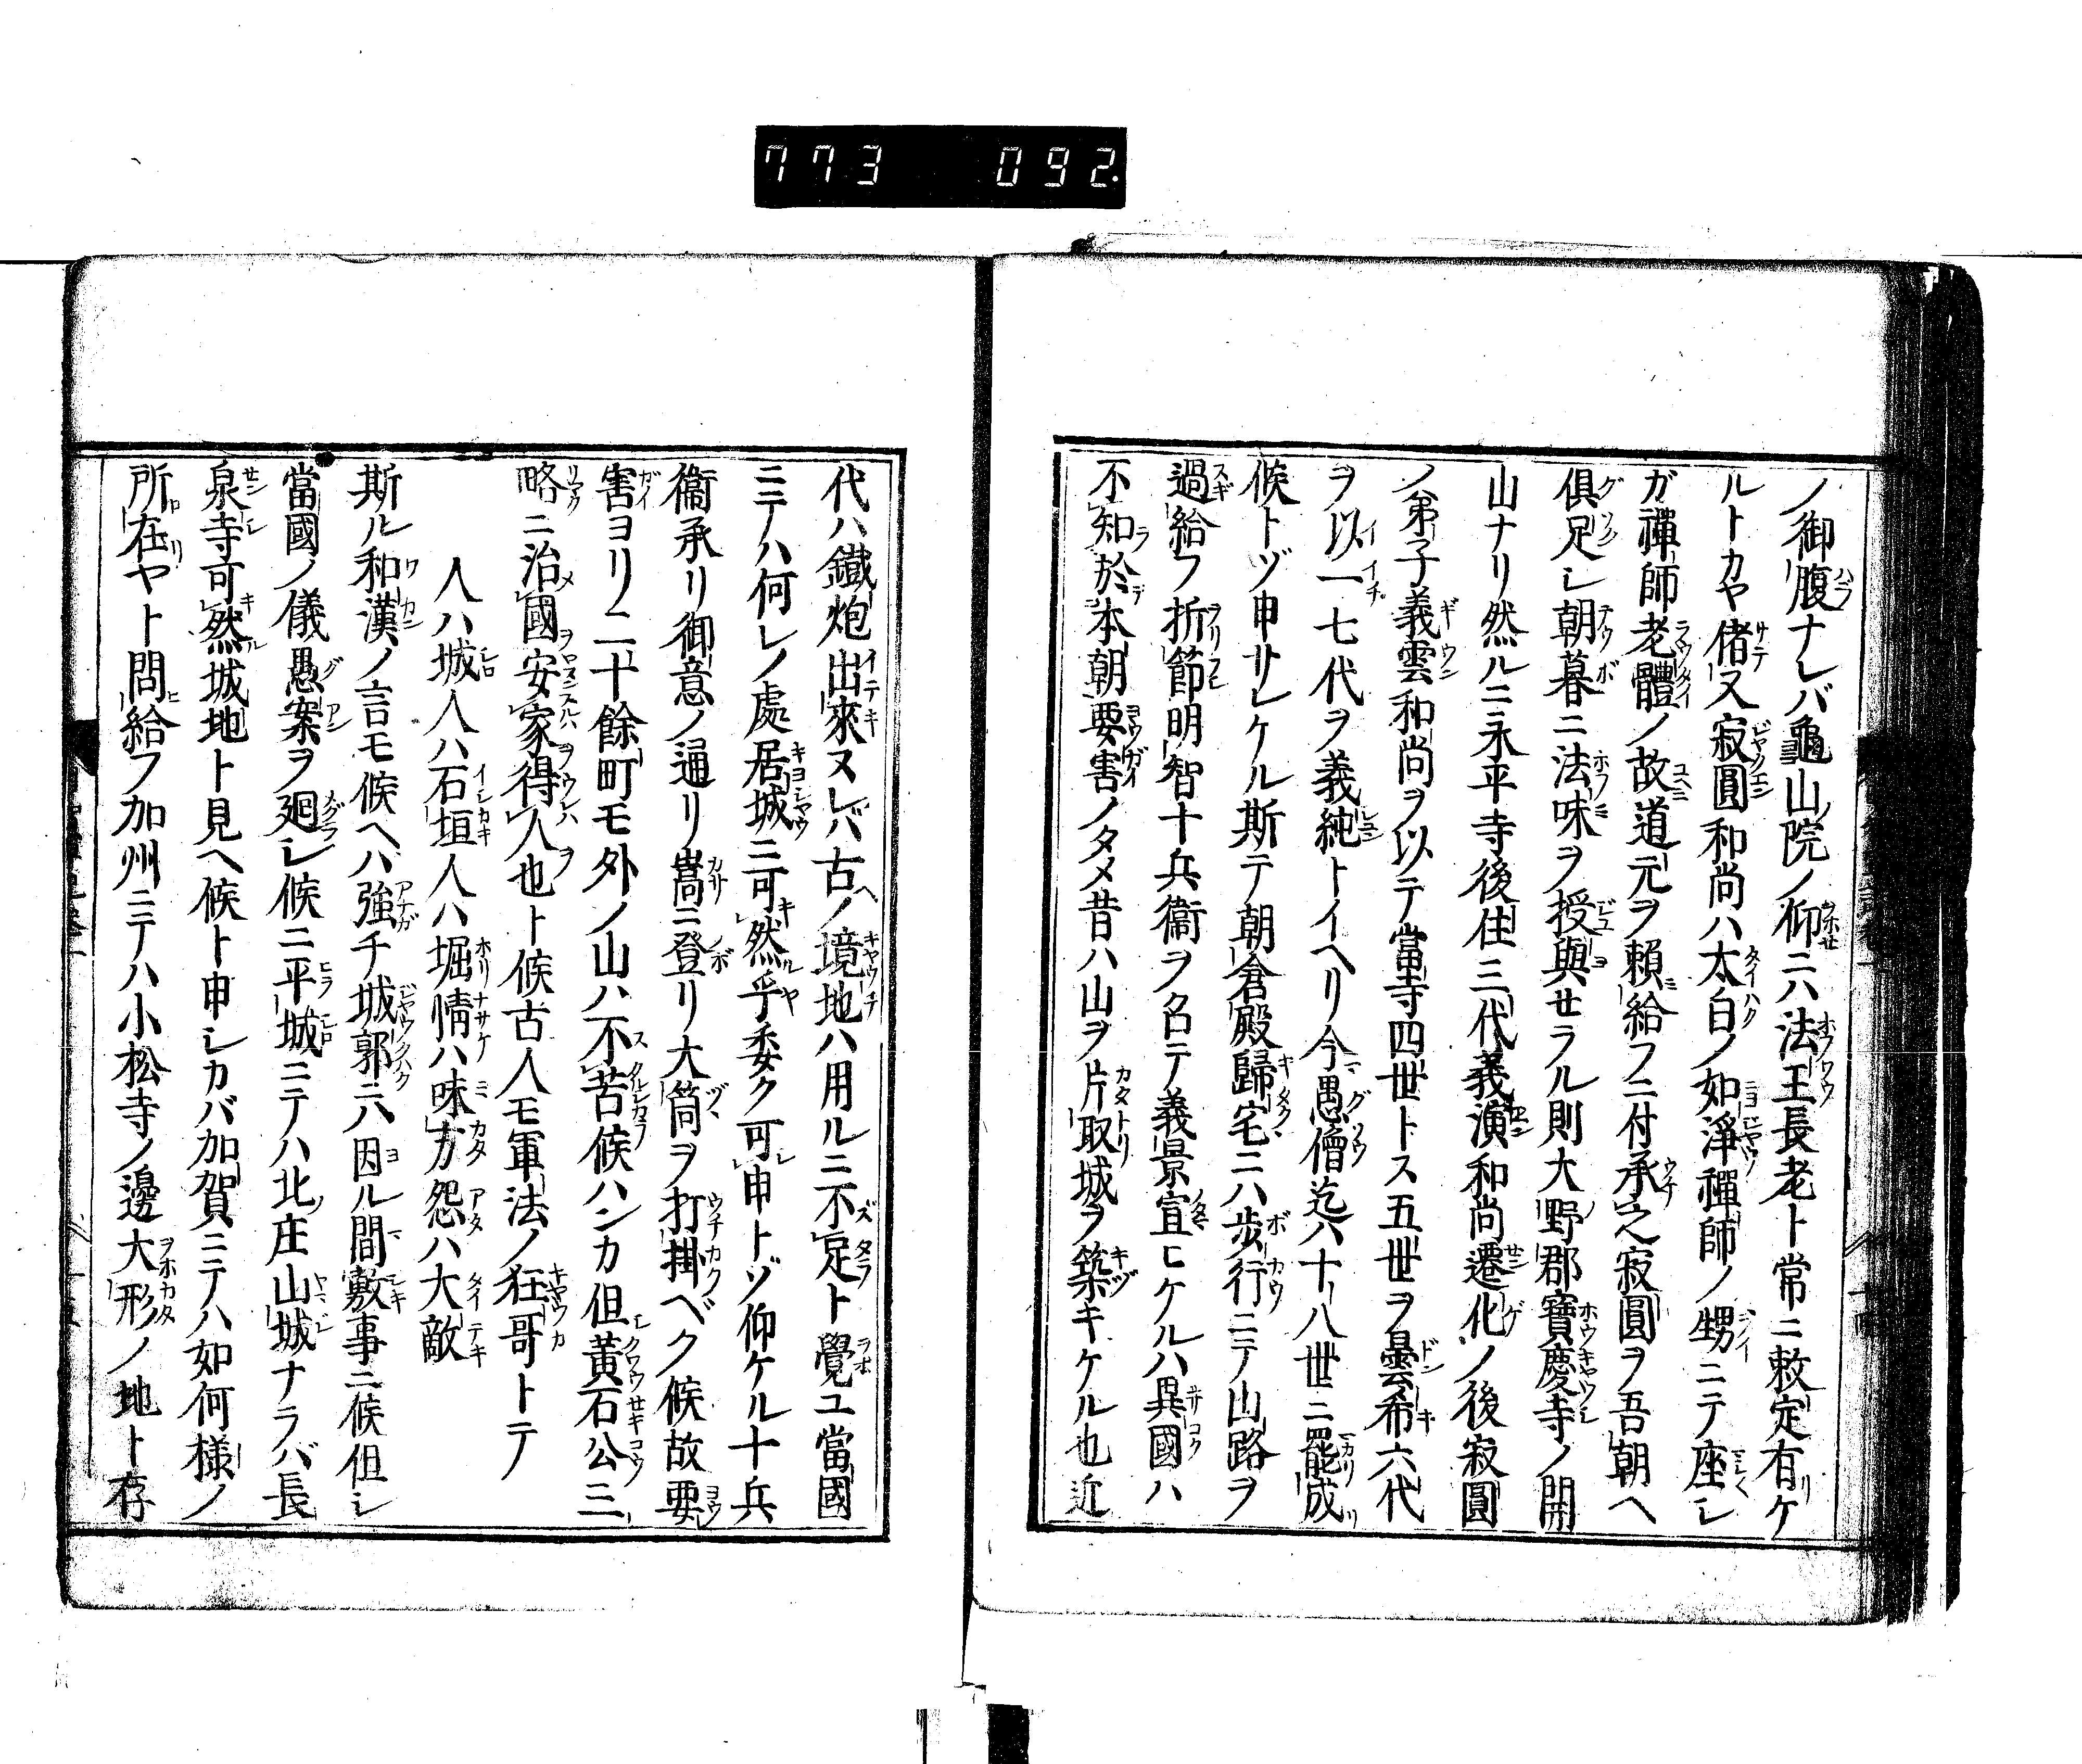 773 092
ノ御腹ナレバ龜山院ノ仰ニハ法王長老ト常ニ敕定有ケ
ルトカヤ偖又寂圓和尚ハ太白ノ如淨禪師ノ甥ニテ座シ
ガ禪師老體ノ故道元ヲ賴給フニ付承之寂圓ヲ吾朝ヘ
俱足シ朝暮ニ法味ヲ授與セラル則大野郡寶慶寺ノ開
山ナリ然ルニ永平寺後住三代義演和尚遷化ノ後寂圓
ノ弟子義雲和尚ヲ以テ當寺四世トス五世ヲ曇希六代
ヲ以一七代ヲ義純トイヘリ今愚僧迄ハ十八世ニ罷成
候トゾ申サレケル斯テ朝倉殿歸宅ニハ歩行ニテ山路ヲ
過給フ折節明智十兵衞ヲ名テ義景宣ヒケルハ異國ハ
不知於本朝要害ノタメ昔ハ山ヲ片取城ヲ築キケル也近
代ハ鐵炮出來ヌレバ古ノ境地ハ用ルニ不足ト覺ユ當國
ニテハ何レノ處居城ニ可然乎委ク可申トゾ仰ケル十兵
衞承リ御意ノ通リ嵩ニ登リ大筒ヲ打掛ベク候故要
害ヨリ二十餘町モ外ノ山ハ不苦候ハンカ但黃石公三
略ニ治國安家得人也ト候古人モ軍法ノ狂哥トテ
人ハ城人ハ石垣人ハ堀情ハ味方怨ハ大敵
斯ル和漢ノ言モ候ヘハ強チ城郭ニハ因ル間敷事ニ候但シ
當國ノ儀愚案ヲ廻シ候ニ平城ニテハ北庄山城ナラバ長
泉寺可然城地ト見ヘ候ト申シカバ加賀ニテハ如何樣ノ
所在ヤト問給フ加州ニテハ小松寺ノ邊大形ノ地ト存